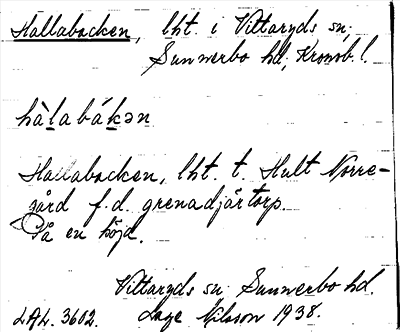 Hallabacken, lht. i Vittaryds sn;
Sunnerbo hd; Kronob. l.
hàlabákən
Hallabacken, lht. t. Hult Norre-
gård f.d. grenadjärtorp.
På en höjd.
Vittaryds sn Sunnerbo hd.
LAL. 3602. Lage Nilsson 1938.